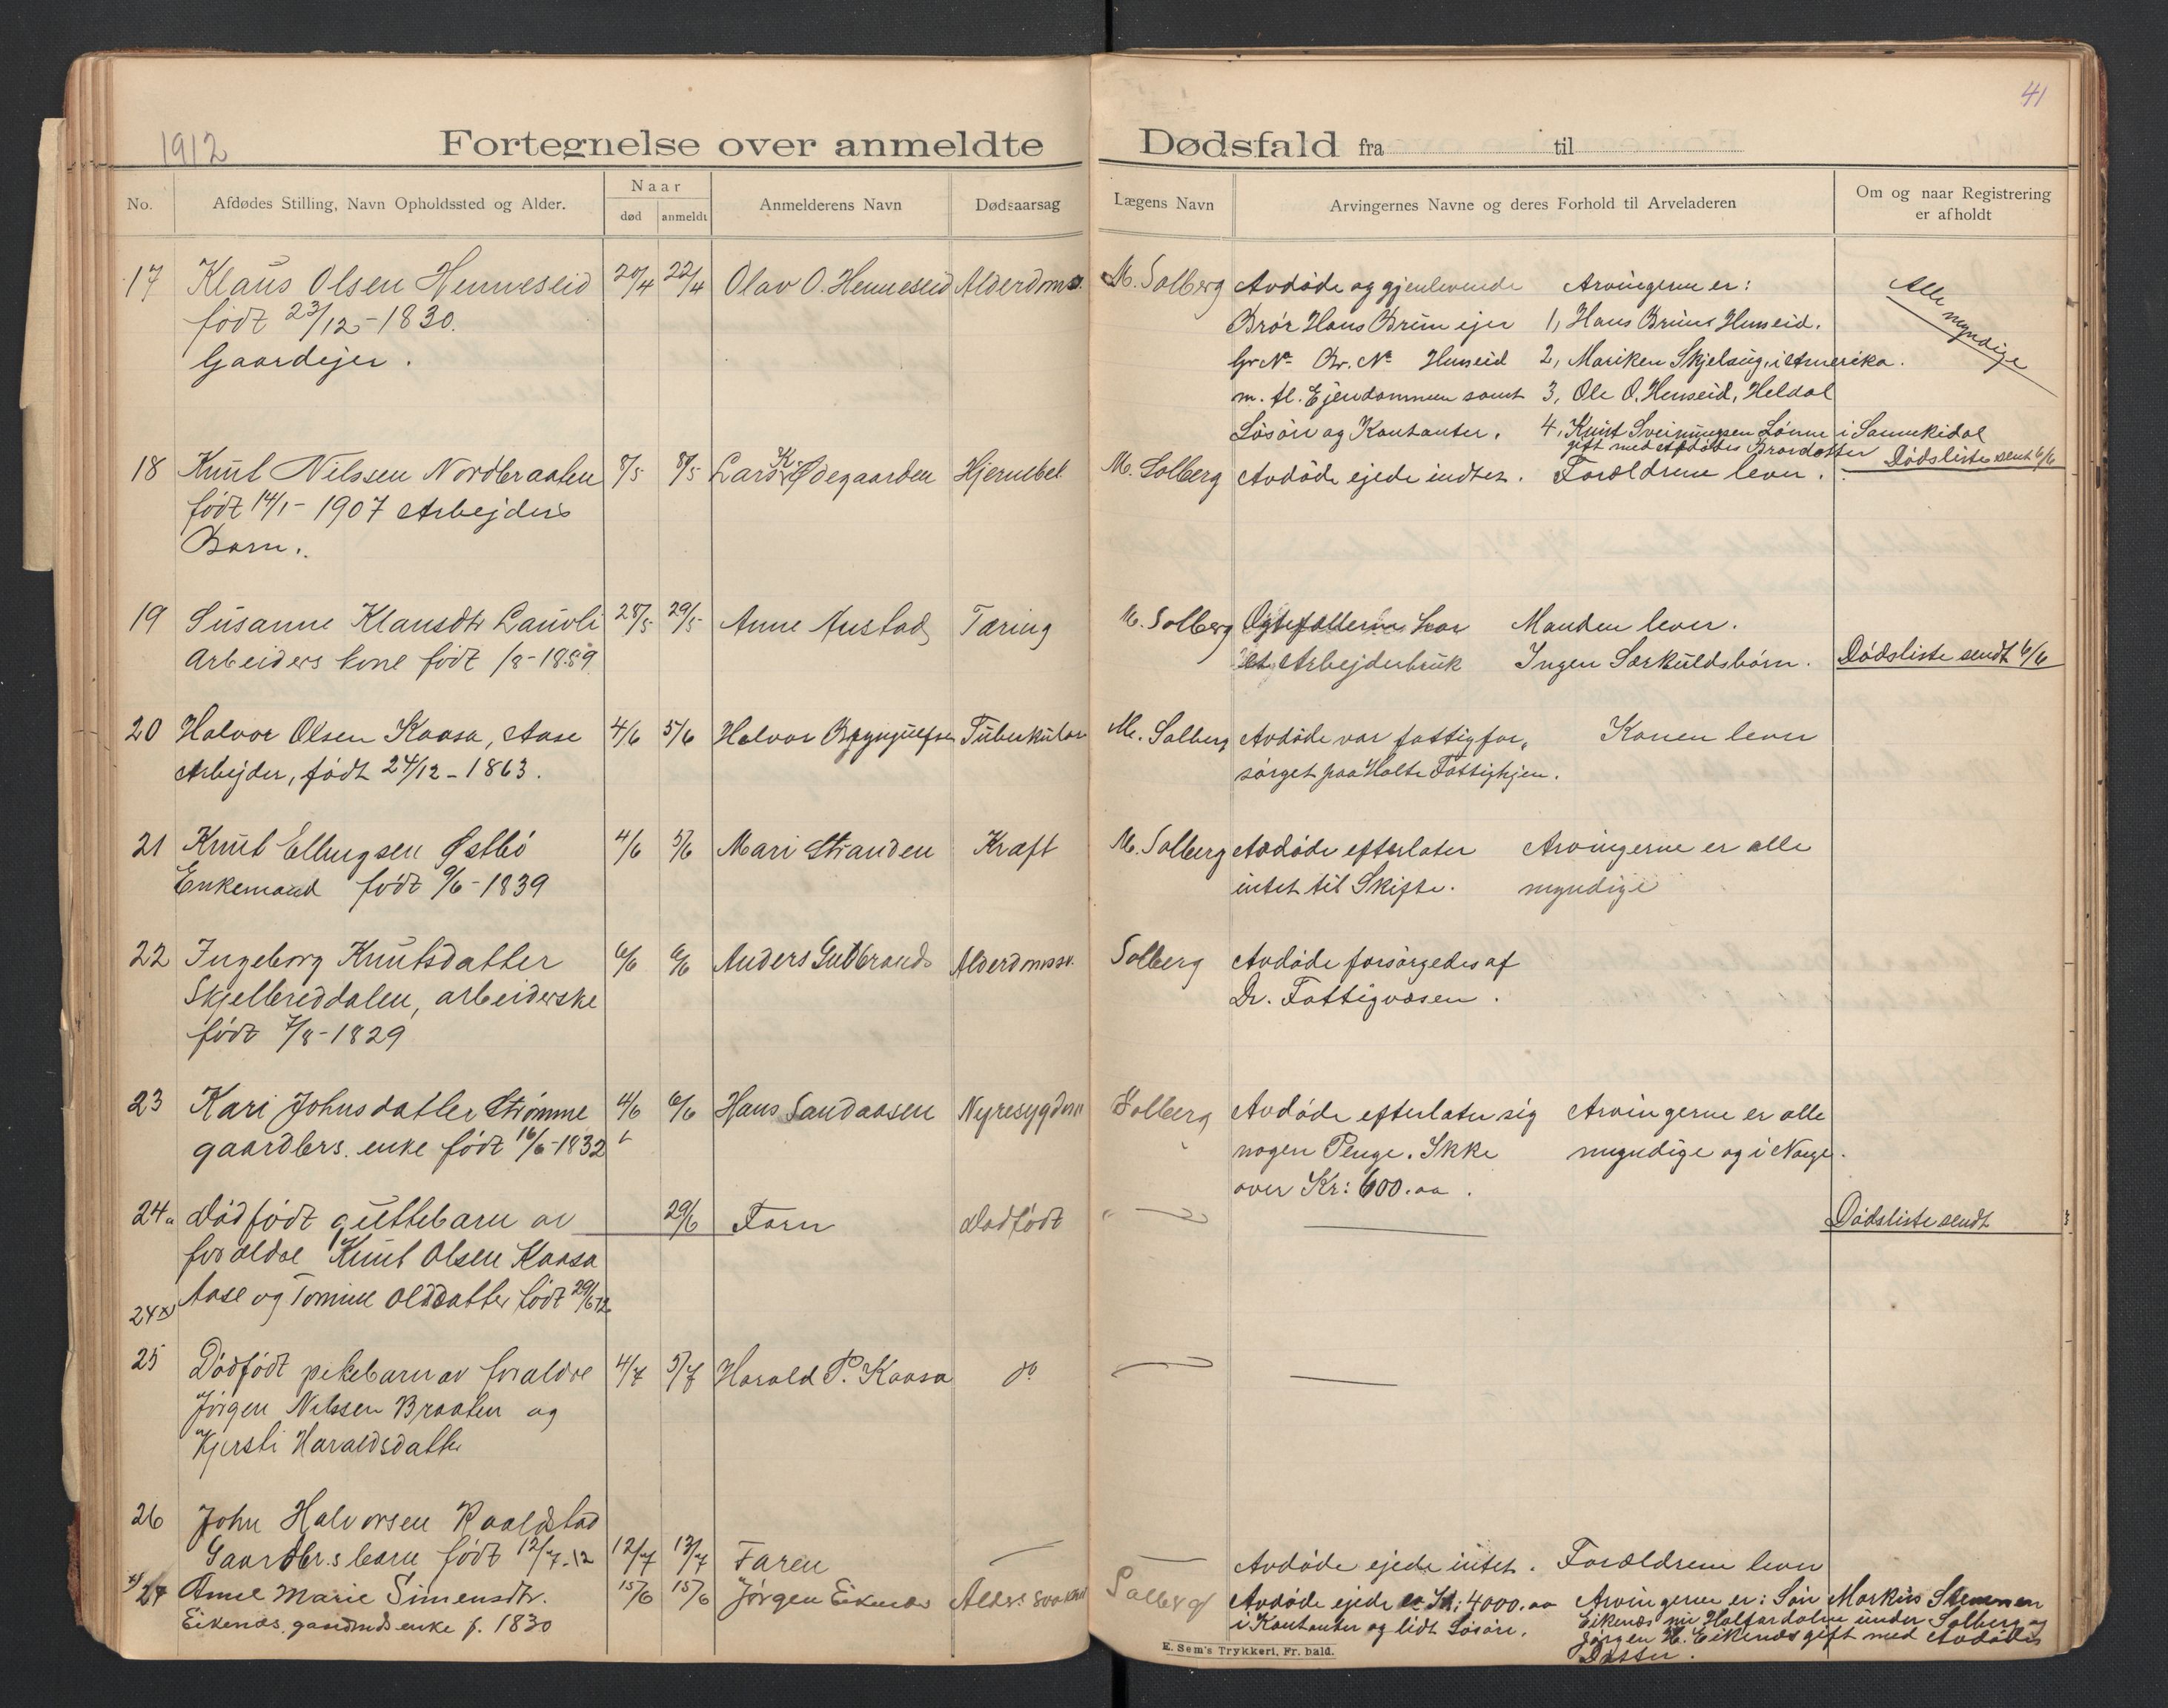 41
1912
Fortegnelse over anmeldte Dødsfald fra til
No.
Afdødes Stilling, Navn Opholdssted og Alder.
Naar
død
anmeldt
Anmelderens Navn
Dødsaarsag
Lægens Navn
Arvingernes Navne og deres Forhold til Arveladeren
Om og naar Registrering
er afholdt
17 Klaus Olsen Henneseid 20/4 22/4 Olav O. Henneseid Alderdoms.
født 23/12-1830.
Gaardejer.
M. Solberg Avdøde og gjenlevende Arvingerne er:
Bror Hans Brun ejer 1, Hans Bruns Hunseid.
Gr No Br. No Hunseid 2, Mariken Skjelsug, i Amerika.
m. fl. Ejendommen samt 3, Ole O. Henseid, Heldal
Løsøre og Kontanter. 4, Knut Sveinungsen Lønne i Sannikedal
gift med Avdødes Brordatter
Alle myndige
18 Knut Nilssen Nordbraaten 8/5 8/5 Lars K. Ødegaarden Hjernebet.
født 14/1-1907 Arbejders
Barn.
M. Solberg Avdøde ejede indtet. Forældrene lever. Dødsliste sent 6/6
19 Susanne Klausdtr Lauvli 28/5 29/5 Anne Austad Tæring
Arbeiders kone født 1/8-1889
M. Solberg Ægtefællerne har Manden lever.
et Arbejderbruk Ingen Særkuldsbørn. Dødsliste sendt 6/6
20 Halvor Olsen Kaasa, Aase 4/6 5/6 Halvor Brynjulfsen Tuberkulose
Arbejder, født 24/12-1863.
M. Solberg Avdøde var fattigfor„ Konen lever
sørget paa Holte Fattighjem.
21 Knut Ellingsen Østbø 4/6 5/6 Mari Stranden Kræft
Enkemand født 9/6-1839
M. Solberg Avdøde efterlater Arvingerne er alle
intet til Skifte. myndige
22 Ingeborg Knutsdatter 6/6 6/6 Anders Gulbrands Alderdomssv.
Skjelbreddalen, arbeiderske
født 7/8-1829
Solberg Avdøde forsørgedes af
Dr. Fattigvæsen.
23 Kari Johnsdatter Strømme 4/6 6/6 Hans Sandaasen Nyresygdom
gaardbrs. enke født 16/6-1832
Solberg Avdøde efterlater sig Arvingerne er alle
nogen Penge. Ikke myndige og i Norge.
over Kr: 600.oo.
24a Dødfødt guttebarn av 29/6 Faren Dødfødt
forældre Knut Olsen Kaasa
Aase og Tomine Olsdatter født 29/6 12
Dødsliste sendt
24x)
25 Dødfødt pikebarn av forældre 4/7 5/7 Harald P. Kaasa do
Jørgen Nilssen Braaten og
Kjersti Haraldsdatter
26 John Halvorsen Raaldstad
Gaardbr.s barn født 12/7-12 12/7 13/7 Faren
Avdøde ejede intet. Forældrene lever
x) 24 Anne Marie Simensdtr. 15/6 15/6 Jørgen Eikenæs Alders svakhet
Eikenæs, gaardmds enke f. 1830
Solberg Avdøde ejede ca Kr: 4000.oo Arvingerne er: Søn Markus Stemmen
i Kontanter og lidt Løsøre. Eikenæs nu Halfardalen under Solberg og
Jørgen H. Eikenæs gift med Avdødes
Datter.
E. Sem's Trykkeri, Fr. hald.